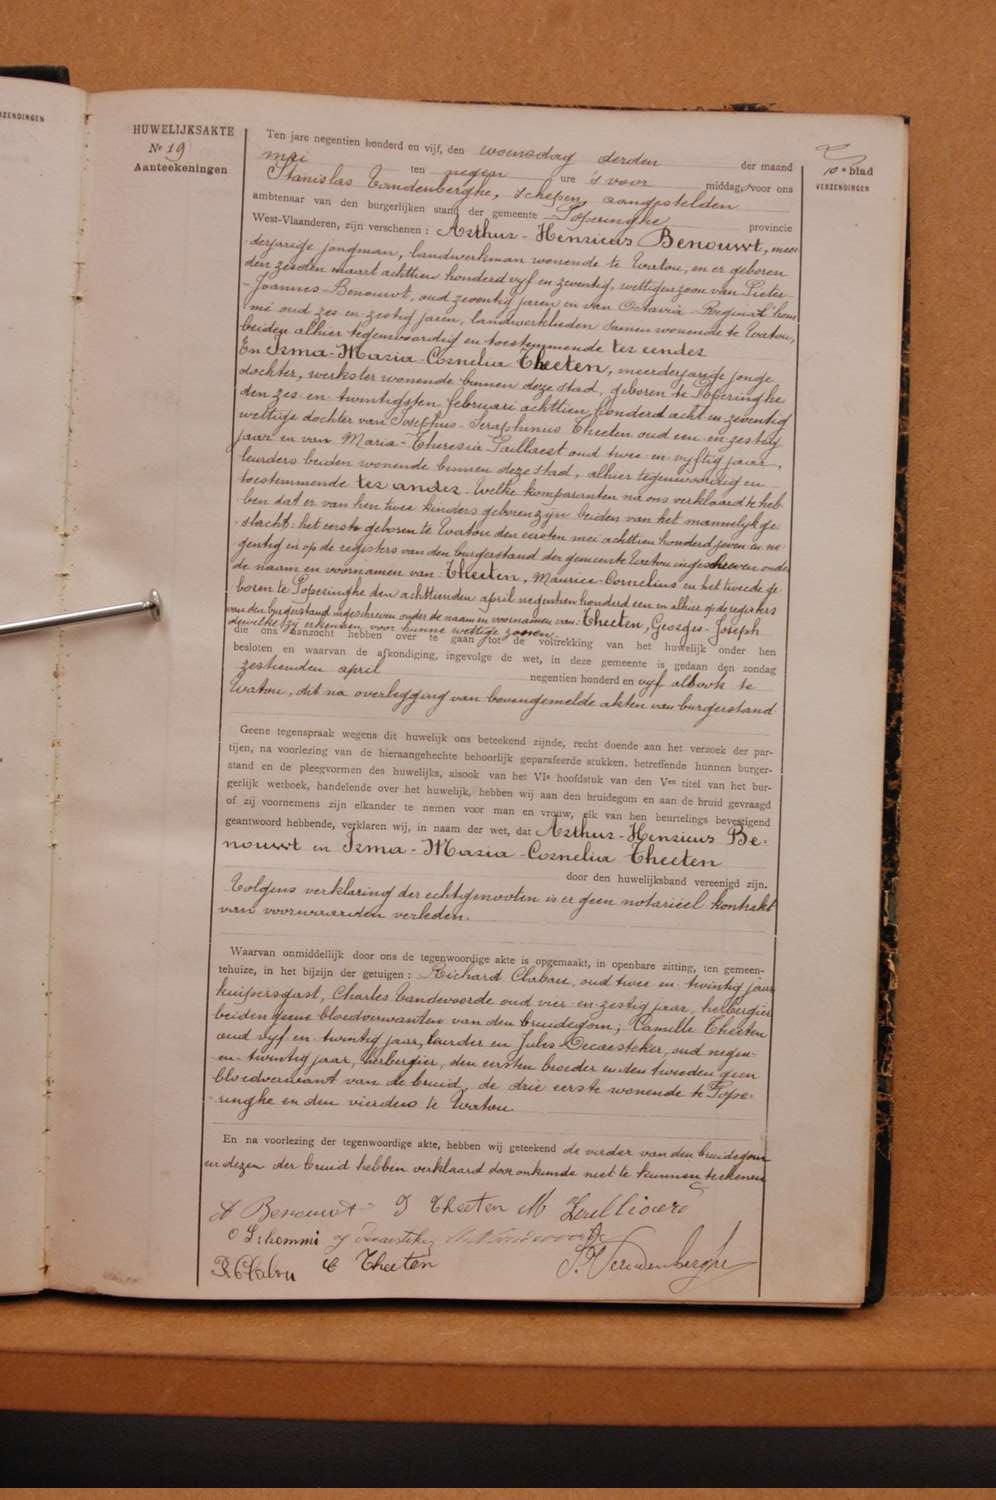 RZENDINGEN
HUWELIJKSAKTE
No 19
Aanteekeningen
10e blad
VERZENDINGEN
Ten jare negentien honderd en vijf, den woensdag derden der maand
mei ten negen ure 's voor middag, voor ons
Stanislas Vandenberghe, schepen, aangestelden
ambtenaar van den burgerlijken stand der gemeente Poperinghe provincie
West-Vlaanderen, zijn verschenen : Arthur-Henricus Benouwt, meer-
derjarige jongman, landwerkman wonende te Watou, en er geboren
den zesden maart achttien honderd vyf en zeventig, wettigen zoon van Pieter-
-Joannes Benouwt, oud zeventig jaren en van Octavia Regina L'hom
mé oud zes en zestig jaren, landwerklieden samen wonende te Watou,
beiden alhier tegenwoordig en toestemmende ter eender
En Irma-Maria-Cornelia Theeten, meerderjarige jonge
dochter, werkster wonende binnen deze stad, geboren te Poperinghe
den zes en twintigsten februari achttien honderd acht en zeventig
wettige dochter van Josephus-Seraphinus Theeten oud een en zestig
jaar en van Maria-Theresia Paillaert oud twee en vyftig jaar,
leurders beiden wonende binnen deze stad, alhier tegenwoordig en
toestemmende ter ander. Welke komparanten na ons verklaard te heb-
ben dat er van hen twee kinders geboren zyn beiden van het mannelyk ge-
slacht: het eerste geboren te Watou den eersten mei achttien honderd zeven en ne-
gentig en op de registers van den burgerstand der gemeente Watou ingeschreven onder
de naam en voornamen van Theeten, Maurice-Cornelius en het tweede ge-
boren te Poperinghe den achttienden april negentien honderd een en alhier op de registers
van den burgerstand ingeschreven onder de naam en voornamen van Theeten, Georges-Joseph
dewelke zy erkennen voor hunne wettige zonen
die ons aanzocht hebben over te gaan tot de voltrekking van het huwelijk onder hen
besloten en waarvan de afkondiging, ingevolge de wet, in deze gemeente is gedaan den zondag
zestienden april negentien honderd en vyf alsook te
Watou, dit na overlegging van bovengemelde akten van burgerstand
Geene tegenspraak wegens dit huwelijk ons beteekend zijnde, recht doende aan het verzoek der par-
tijen, na voorlezing van de hieraangehechte behoorlijk geparafeerde stukken, betreffende hunnen burger-
stand en de pleegvormen des huwelijks, alsook van het VIe hoofdstuk van den Ven titel van het bur-
gerlijk wetboek, handelende over het huwelijk, hebben wij aan den bruidegom en aan de bruid gevraagd
of zij voornemens zijn elkander te nemen voor man en vrouw, elk van hen beurtelings bevestigend
geantwoord hebbende, verklaren wij, in naam der wet, dat Arthur-Henricus Be-
nouwt en Irma-Maria-Cornelia Theeten
door den huwelijksband vereenigd zijn.
Volgens verklaring der echtgenooten is er geen notariëel kontrakt
van voorwaarden verleden.
Waarvan onmiddellijk door ons de tegenwoordige akte is opgemaakt, in openbare zitting, ten gemeen-
tehuize, in het bijzijn der getuigen : Richard Clabau, oud twee en twintig jaar
kuipersgast, Charles Vandevoorde oud vier en zestig jaar, herbergier
beiden geene bloedverwanten van den bruidegom, Camille Theeten
oud vyf en twintig jaar, leurder en Jules Decaesteker, oud negen-
en twintig jaar, herbergier, den eersten broeder en den tweeden geen
bloedverwant van de bruid, de drie eerste wonende te Pope-
ringhe en den vierden te Watou
En na voorlezing der tegenwoordige akte, hebben wij geteekend de vader van den bruidegom
en dezen der bruid hebben verklaard door onkunde niet te kunnen teekenen
A Benouwt I Theeten M
O Lhommé J Decaesteker
R Clabau C Theeten S. Vandenberghe